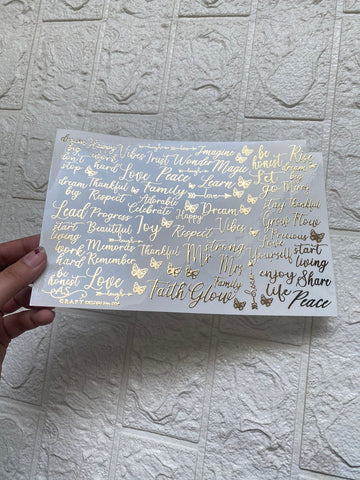 dream
big
don't work
stop hard
Vibes
Imagine
Trust Wonder
Magic
be
honest
Rise
dream
big
Love Peace
Let
go
dream Thankful
big Respect
Family
Learn
Adorable
Celebrate
Happy
love
Dream
Stay Thankful
Grow Flow
Lead Progress
start Beautiful
living
Joy
Respect
Vibes
Precious
Love
Yourself
start
living
work Memories
hard Remember
Thankful
Mr
Mrs
strong
enjoy Share
life
be
honest
Love
laugh
Faith Glow
Family
Peace
CRAFT